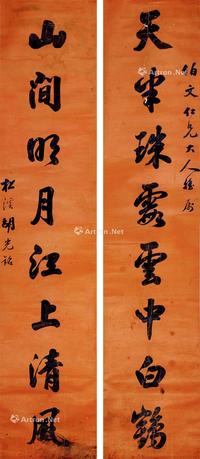 伯文仁兄大人雅属
天半珠霞雲中白鶴
山澗明月江上清風
松溪胡光
Artron.Net
Artron.Net